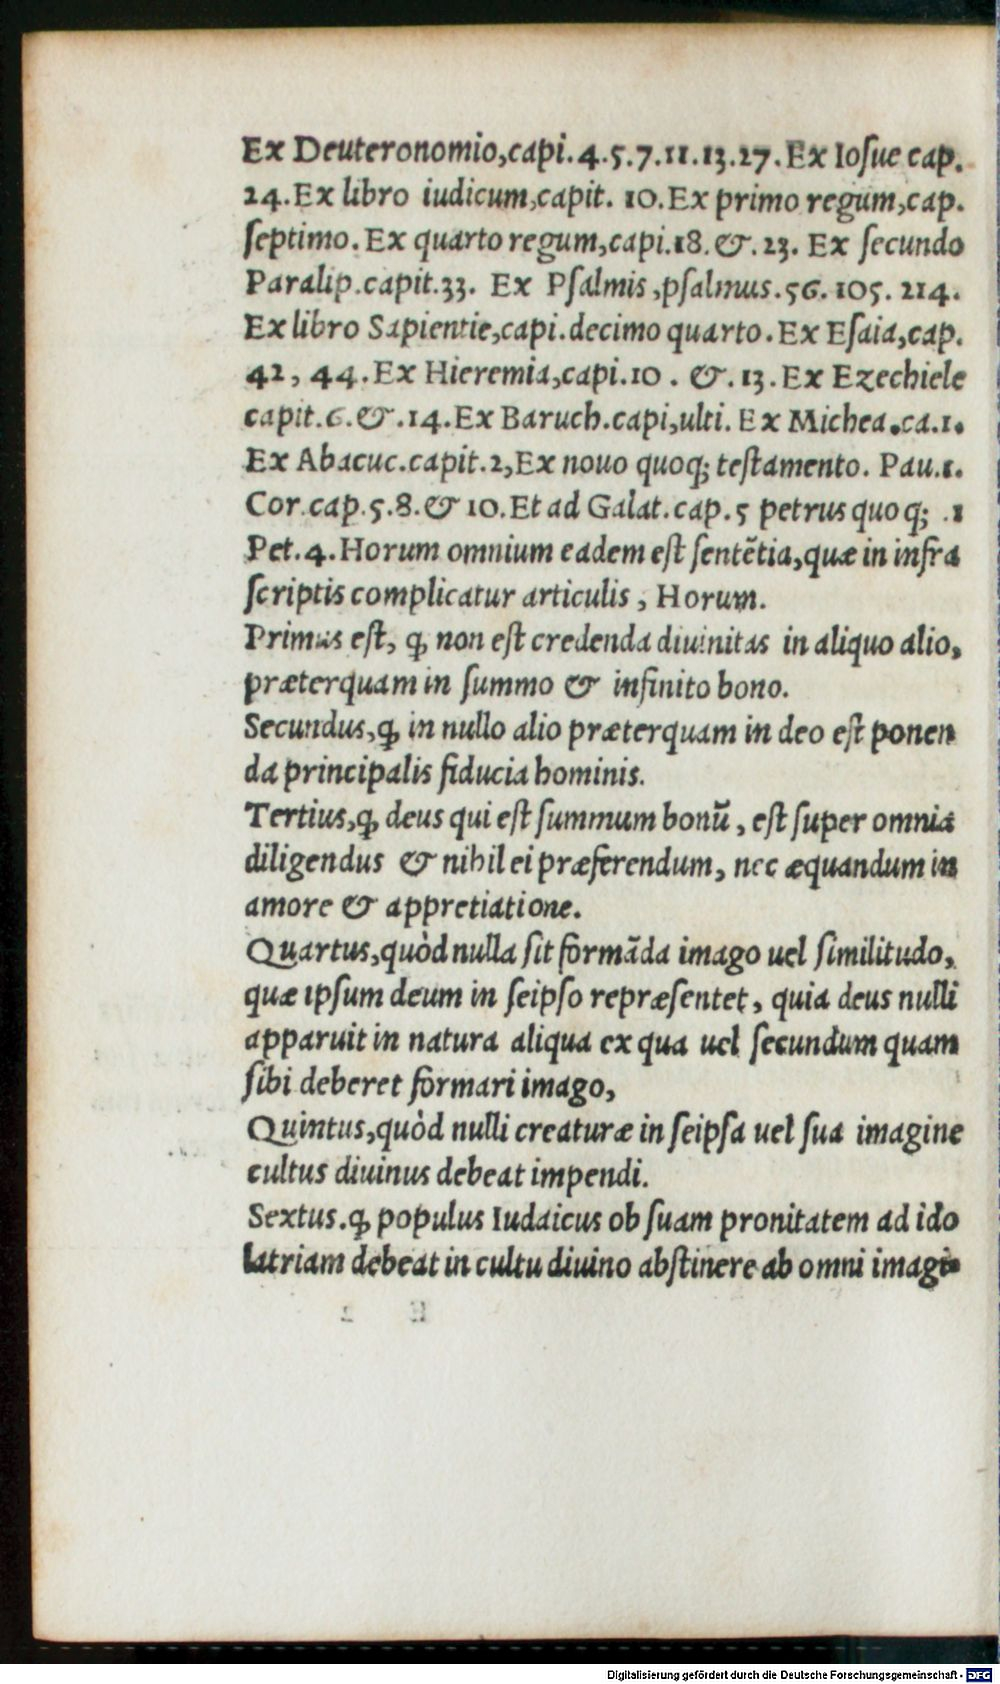 Ex Deuteronomio,capi.4.5.7.11.13.27.Ex Ioſue cap.
24.Ex libro iudicum,capit. 10.Ex primo regum,cap.
ſeptimo. Ex quarto regum,capi.18.&. 23. Ex ſecundo
Paralip.capit.33. Ex Pſalmis ,pſalmus.56.105. 214.
Ex libro Sapientie,capi.decimo quarto. Ex Eſaia,cap.
42, 44.Ex Hieremia,capi.10 . &. 13.Ex Ezechiele
capit.6.&.14.Ex Baruch.capi,ulti. Ex Michea.ca.1.
Ex Abacuc.capit.2,Ex nouo quoqꝫ teſtamento. Pau.1.
Cor.cap.5.8.& 10.Et ad Galat.cap.5 petrus quoqꝫ .1
Pet.4.Horum omnium eadem eſt ſentētia,quæ in infra
ſcriptis complicatur articulis , Horum.
Primus eſt, ꝙ non eſt credenda diuinitas in aliquo alio,
præterquam in ſummo & infinito bono.
Secundus,ꝙ in nullo alio præterquam in deo eſt ponen
da principalis fiducia hominis.
Tertius,ꝙ deus qui eſt ſummum bonū , eſt ſuper omnia
diligendus & nihil ei præferendum, nec æquandum in
amore & appretiatione.
Quartus,quòd nulla ſit formāda imago uel ſimilitudo,
quæ ipſum deum in ſeipſo repræſentet, quia deus nulli
apparuit in natura aliqua ex qua uel ſecundum quam
ſibi deberet formari imago,
Quintus,quòd nulli creaturæ in ſeipſa uel ſua imagine
cultus diuinus debeat impendi.
Sextus.ꝙ populus Iudaicus ob ſuam pronitatem ad ido
latriam debeat in cultu diuino abſtinere ab omni imagi-
Digitalisierung gefördert durch die Deutsche Forschungsgemeinschaft - DFG